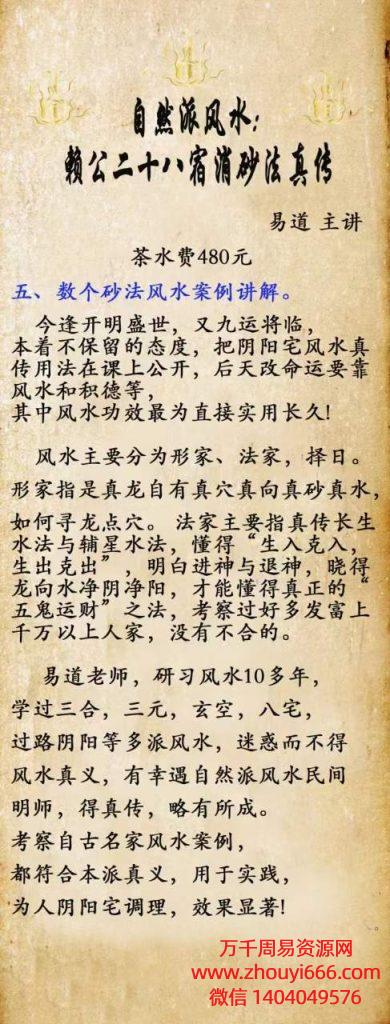 自然派风水：
赖公二十八宿消砂法真传
易道 主讲
茶水费480元
五、数个砂法风水案例讲解。
今逢开明盛世，又九运将临，
本着不保留的态度，把阴阳宅风水真
传用法在课上公开，后天改命运要靠
风水和积德等，
其中风水功效最为直接实用长久！
风水主要分为形家、法家，择日。
形家指是真龙自有真穴真向真砂真水，
如何寻龙点穴。 法家主要指真传长生
水法与辅星水法，懂得“生入克入，
生出克出”，明白进神与退神，晓得
龙向水净阴净阳，才能懂得真正的“
五鬼运财”之法，考察过好多发富上
千万以上人家，没有不合的。
易道老师，研习风水10多年，
学过三合，三元，玄空，八宅，
过路阴阳等多派风水，迷惑而不得
风水真义，有幸遇自然派风水民间
明师，得真传，略有所成。
考察自古名家风水案例，
都符合本派真义，用于实践，
为人阴阳宅调理，效果显著！
。
万千周易资源网
www.zhouyi666.com
微信 1404049576